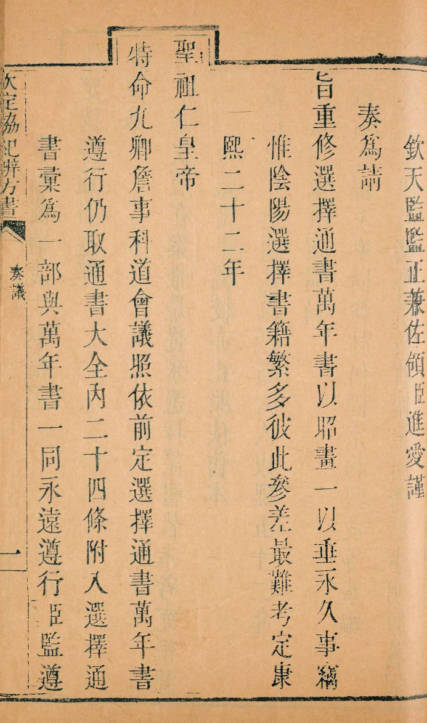 欽天監監正兼佐領臣進愛謹
奏爲請
旨重修選擇通書萬年書以昭畫一以垂永久事竊
惟陰陽選擇書籍繁多彼此參差最難考定康
熙二十二年
聖祖仁皇帝
特命九卿詹事科道會議照依前定選擇通書萬年書
遵行仍取通書大全內二十四條附入選擇通
書彙爲一部與萬年書一同永遠遵行臣監遵
欽定協紀辨方書
奏議
一